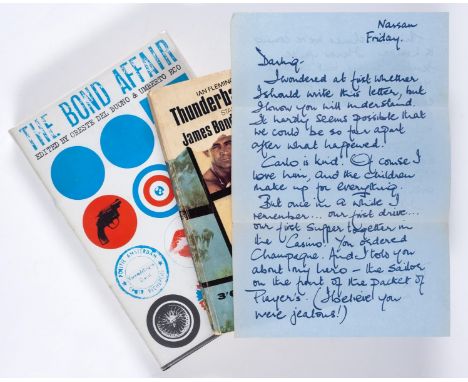 THE BOND AFFAIR
EDITED BY ORESTE DEL BUONO & UMBERTO ECO
IAN FLEMING
Thunderba
STA
James Bond
3'6
Nassau
Friday.
Darling-
I wondered at first whether
I should write this letter, but
I know you will understand.
It hardly seems possible that
we could be so far apart
after what happened.
Carlo is kind. Of course I
love him, and the children
make up for everything.
But once in a while I
remember... our first drive...
our first supper together in
the Casino. You ordered
Champagne. And I told you
about my hero - the sailor
on the front of the packet of
Player's. (I believe you
were jealous!)